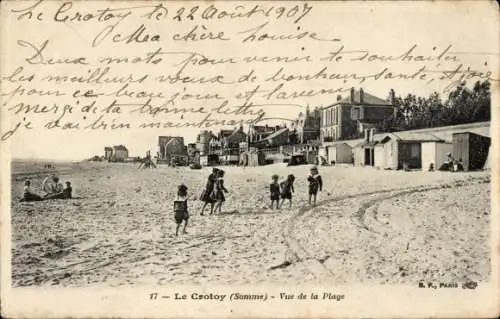 Le Crotoy le 22 Août 1907
Ma chère Louise.
Deux mots pour venir te souhaiter
les meilleurs vœux de bonheur, santé, etc
pour ce beau jour et l'avenir.
merci de ta bonne lettre
je t'ai bien
17 — LE CROTOY (Somme) - Vue de la Plage
B. F., PARIS